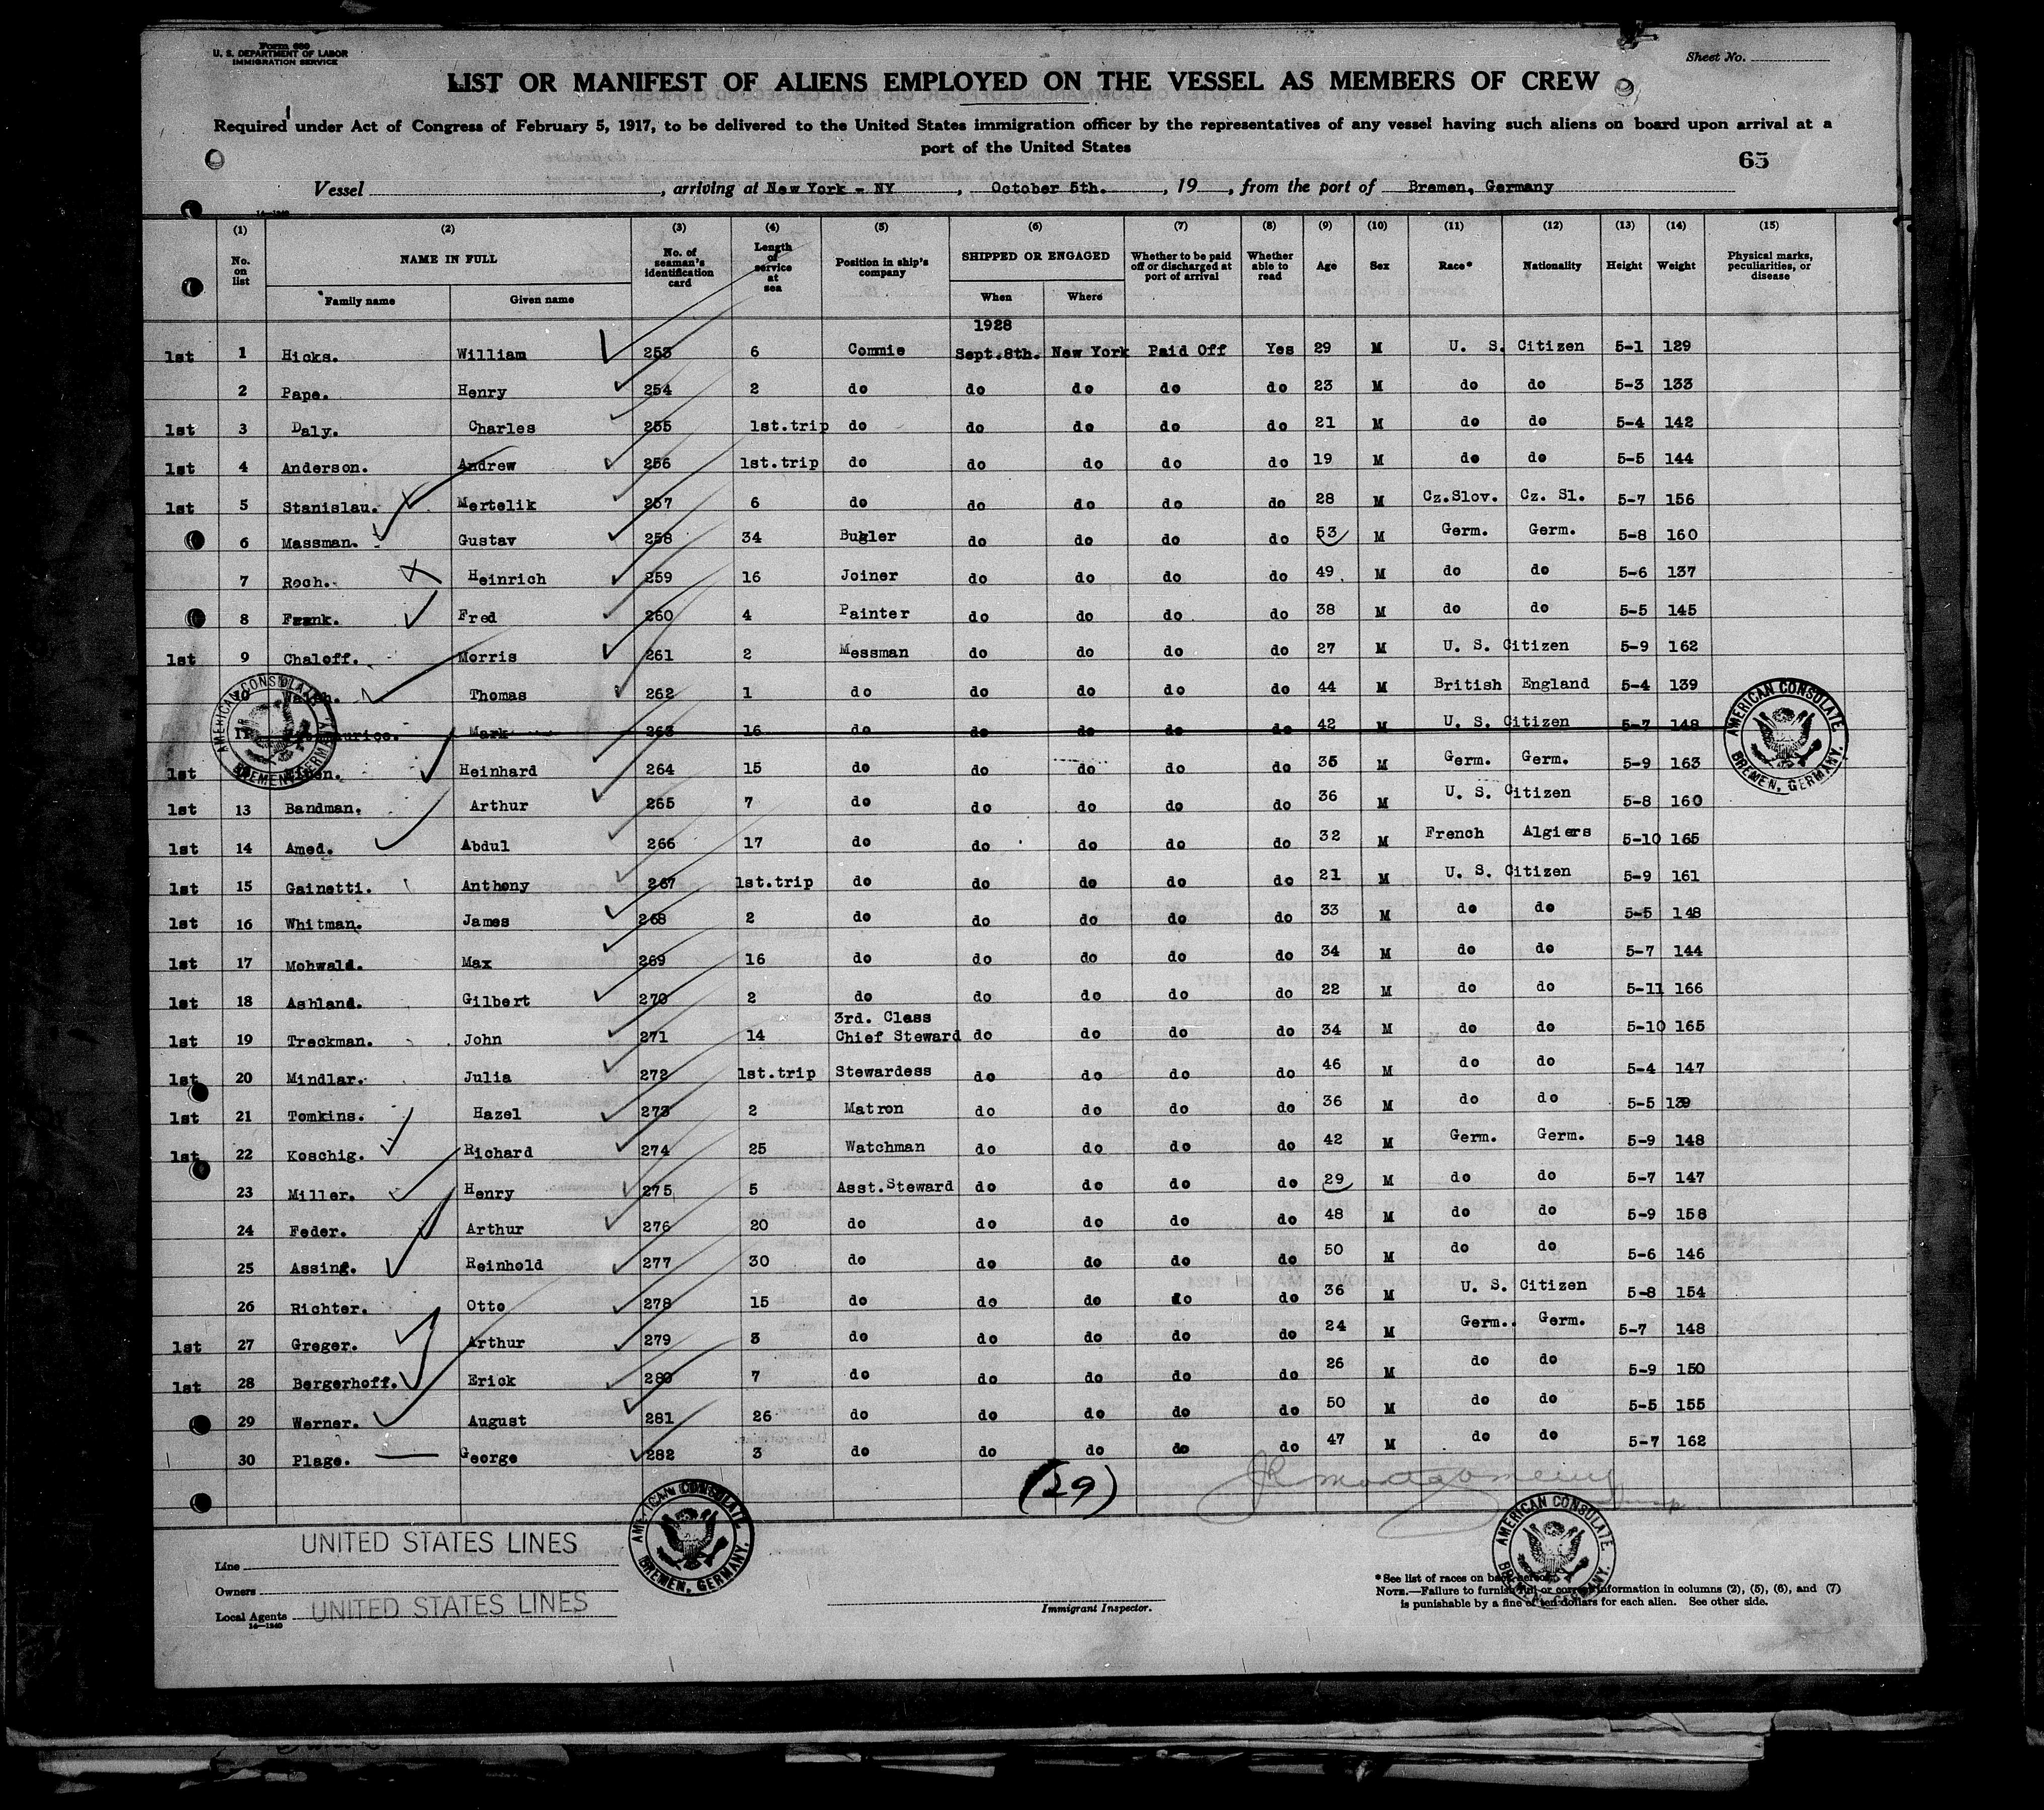 Form 689
U. S. DEPARTMENT OF LABOR
IMMIGRATION SERVICE
Sheet No.
LIST OR MANIFEST OF ALIENS EMPLOYED ON THE VESSEL AS MEMBERS OF CREW
Required under Act of Congress of February 5, 1917, to be delivered to the United States immigration officer by the representatives of any vessel having such aliens on board upon arrival at a
port of the United States
65
Vessel , arriving at New York - NY , October 5th. , 19 , from the port of Bremen, Germany
(1) (2) (3) (4) (5) (6) (7) (8) (9) (10) (11) (12) (13) (14) (15)
No. on list NAME IN FULL No. of seaman's identification card Length of service at sea Position in ship's company SHIPPED OR ENGAGED Whether to be paid off or discharged at port of arrival Whether able to read Age Sex Race* Nationality Height Weight Physical marks, peculiarities, or disease
Family name Given name When Where
1928
1st 1 Hicks. William 253 6 Commie Sept.8th. New York Paid Off Yes 29 M U. S. Citizen 5-1 129
2 Pape. Henry 254 2 do do do do do 23 M do do 5-3 133
1st 3 Daly. Charles 255 1st.trip do do do do do 21 M do do 5-4 142
1st 4 Anderson. Andrew 256 1st.trip do do do do do 19 M do do 5-5 144
1st 5 Stanislau. Mertelik 257 6 do do do do do 28 M Cz.Slov. Cz. Sl. 5-7 156
6 Massman. Gustav 258 34 Bugler do do do do 53 M Germ. Germ. 5-8 160
7 Roch. Heinrich 259 16 Joiner do do do do 49 M do do 5-6 137
8 Frank. Fred 260 4 Painter do do do do 38 M do do 5-5 145
1st 9 Chaloff. Morris 261 2 Messman do do do do 27 M U. S. Citizen 5-9 162
10 Thomas 262 1 do do do do do 44 M British England 5-4 139
11 Mark 263 16 do do do do do 42 M U. S. Citizen 5-7 148
1st Heinhard 264 15 do do do do do 35 M Germ. Germ. 5-9 163
1st 13 Bandman. Arthur 265 7 do do do do do 36 M U. S. Citizen 5-8 160
1st 14 Amed. Abdul 266 17 do do do do do 32 M French Algiers 5-10 165
1st 15 Gainetti. Anthony 267 1st.trip do do do do do 21 M U. S. Citizen 5-9 161
1st 16 Whitman. James 268 2 do do do do do 33 M do do 5-5 148
1st 17 Mohwald. Max 269 16 do do do do do 34 M do do 5-7 144
1st 18 Ashland. Gilbert 270 2 do do do do do 22 M do do 5-11 166
1st 19 Treckman. John 271 14 3rd. Class Chief Steward do do do do 34 M do do 5-10 165
1st 20 Mindlar. Julia 272 1st.trip Stewardess do do do do 46 M do do 5-4 147
1st 21 Tomkins. Hazel 273 2 Matron do do do do 36 M do do 5-5 139
1st 22 Koschig. Richard 274 25 Watchman do do do do 42 M Germ. Germ. 5-9 148
23 Miller. Henry 275 5 Asst.Steward do do do do 29 M do do 5-7 147
24 Feder. Arthur 276 20 do do do do do 48 M do do 5-9 158
25 Assing. Reinhold 277 30 do do do do do 50 M do do 5-6 146
26 Richter. Otto 278 15 do do do do do 36 M U. S. Citizen 5-8 154
1st 27 Greger. Arthur 279 3 do do do do do 24 M Germ. Germ. 5-7 148
1st 28 Bergerhoff. Erick 280 7 do do do do do 26 M do do 5-9 150
29 Werner. August 281 26 do do do do do 50 M do do 5-5 155
30 Plage. George 282 3 do do do do do 47 M do do 5-7 162
(29)
AMERICAN CONSULATE, BREMEN, GERMANY.
AMERICAN CONSULATE, BREMEN, GERMANY.
AMERICAN CONSULATE, BREMEN, GERMANY.
AMERICAN CONSULATE, BREMEN, GERMANY.
Line UNITED STATES LINES
Owners
Local Agents UNITED STATES LINES
14—1240
Immigrant Inspector.
*See list of races on back hereof.
NOTE.—Failure to furnish full or correct information in columns (2), (5), (6), and (7)
is punishable by a fine of ten dollars for each alien. See other side.